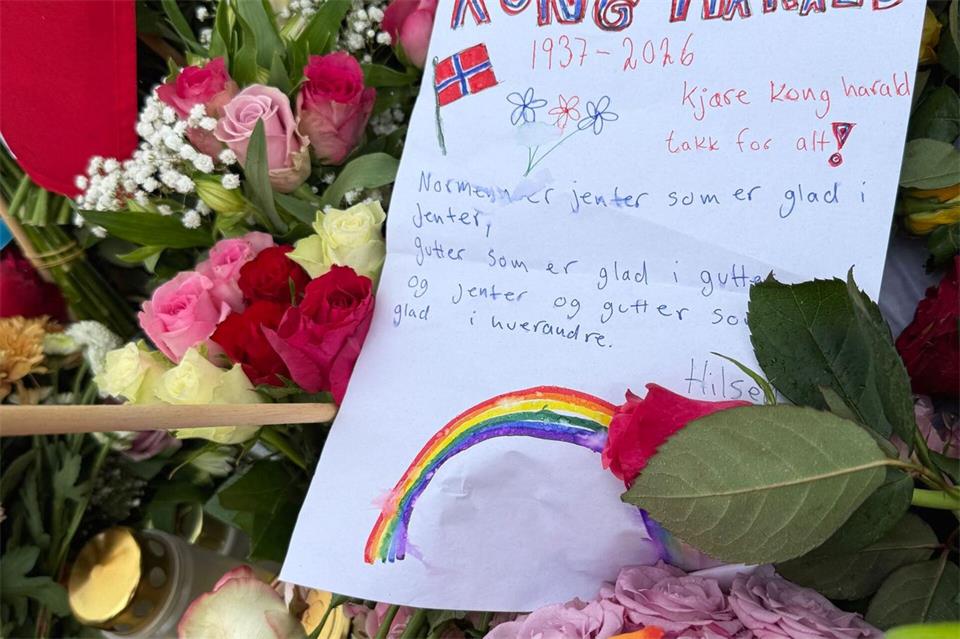 KONG HARALD
1937-2026
Kjære Kong harald
takk for alt!
Normenn er jenter som er glad i
jenter,
gutter som er glad i gutte
og jenter og gutter som
glad i hverandre.
Hilse